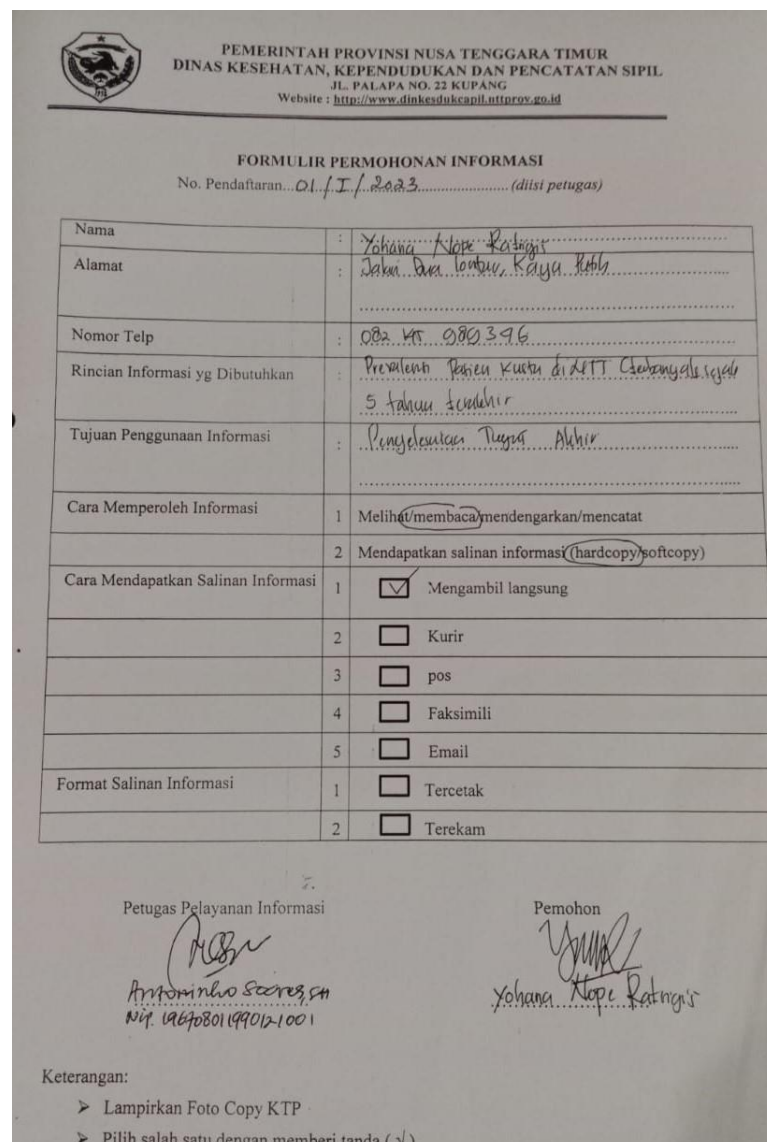 PEMERINTAH PROVINSI NUSA TENGGARA TIMUR
DINAS KESEHATAN, KEPENDUDUKAN DAN PENCATATAN SIPIL
JL. PALAPA NO. 22 KUPANG
Website : http://www.dinkesdukcapil.nttprov.go.id
FORMULIR PERMOHONAN INFORMASI
No. Pendaftaran...01./I/.2023......................(diisi petugas)
Nama : Yohana Nope Ratrigis
Alamat : Jalan Dua Lontar, Kayu Putih
Nomor Telp : 082 145 989396
Rincian Informasi yg Dibutuhkan : Prevalensi Pasien Kusta di NTT sejak
5 tahun terakhir
Tujuan Penggunaan Informasi : Penyelesaian Tugas Akhir
Cara Memperoleh Informasi 1 Melihat/membaca/mendengarkan/mencatat
2 Mendapatkan salinan informasi (hardcopy/softcopy)
Cara Mendapatkan Salinan Informasi 1 Mengambil langsung
2 Kurir
3 pos
4 Faksimili
5 Email
Format Salinan Informasi 1 Tercetak
2 Terekam
Petugas Pelayanan Informasi Pemohon
Antoninho Soares, SH Yohana Nope Ratrigis
Nip. 196708011990121001
Keterangan:
➢ Lampirkan Foto Copy KTP
➢ Pilih salah satu dengan memberi tanda (√)